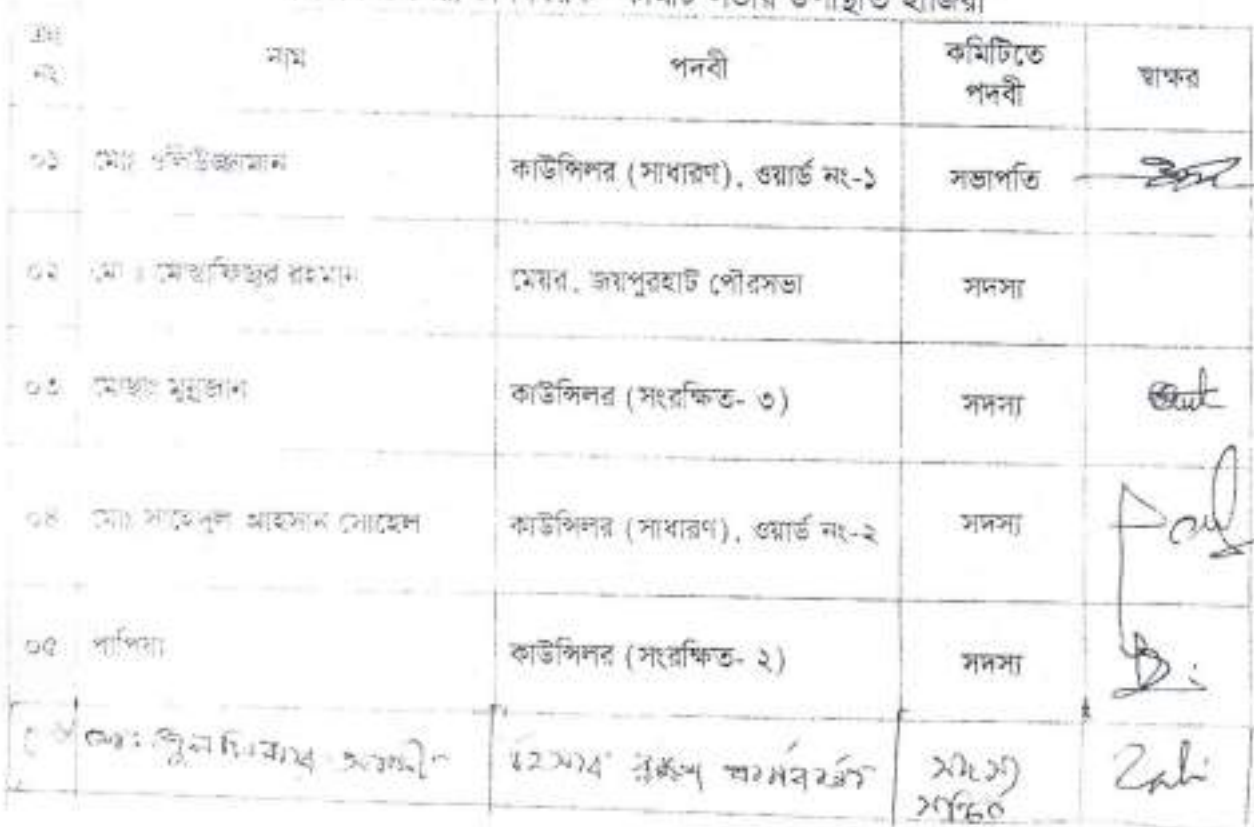 কমিটি সভায় উপস্থিতি হাজিরা
ক্রঃ নং নাম পদবী কমিটিতে পদবী স্বাক্ষর
০১ মোঃ ওলিউজ্জামান কাউন্সিলর (সাধারণ), ওয়ার্ড নং-১ সভাপতি
০২ মোঃ মোস্তাফিজুর রহমান মেয়র, জয়পুরহাট পৌরসভা সদস্য
০৩ মোছাঃ মুন্নুজান কাউন্সিলর (সংরক্ষিত- ৩) সদস্য
০৪ মোঃ সাহেদুল আহসান সোহেল কাউন্সিলর (সাধারণ), ওয়ার্ড নং-২ সদস্য
০৫ পাপিয়া কাউন্সিলর (সংরক্ষিত- ২) সদস্য
০৬ মোঃ হিসাব সদস্য সচিব